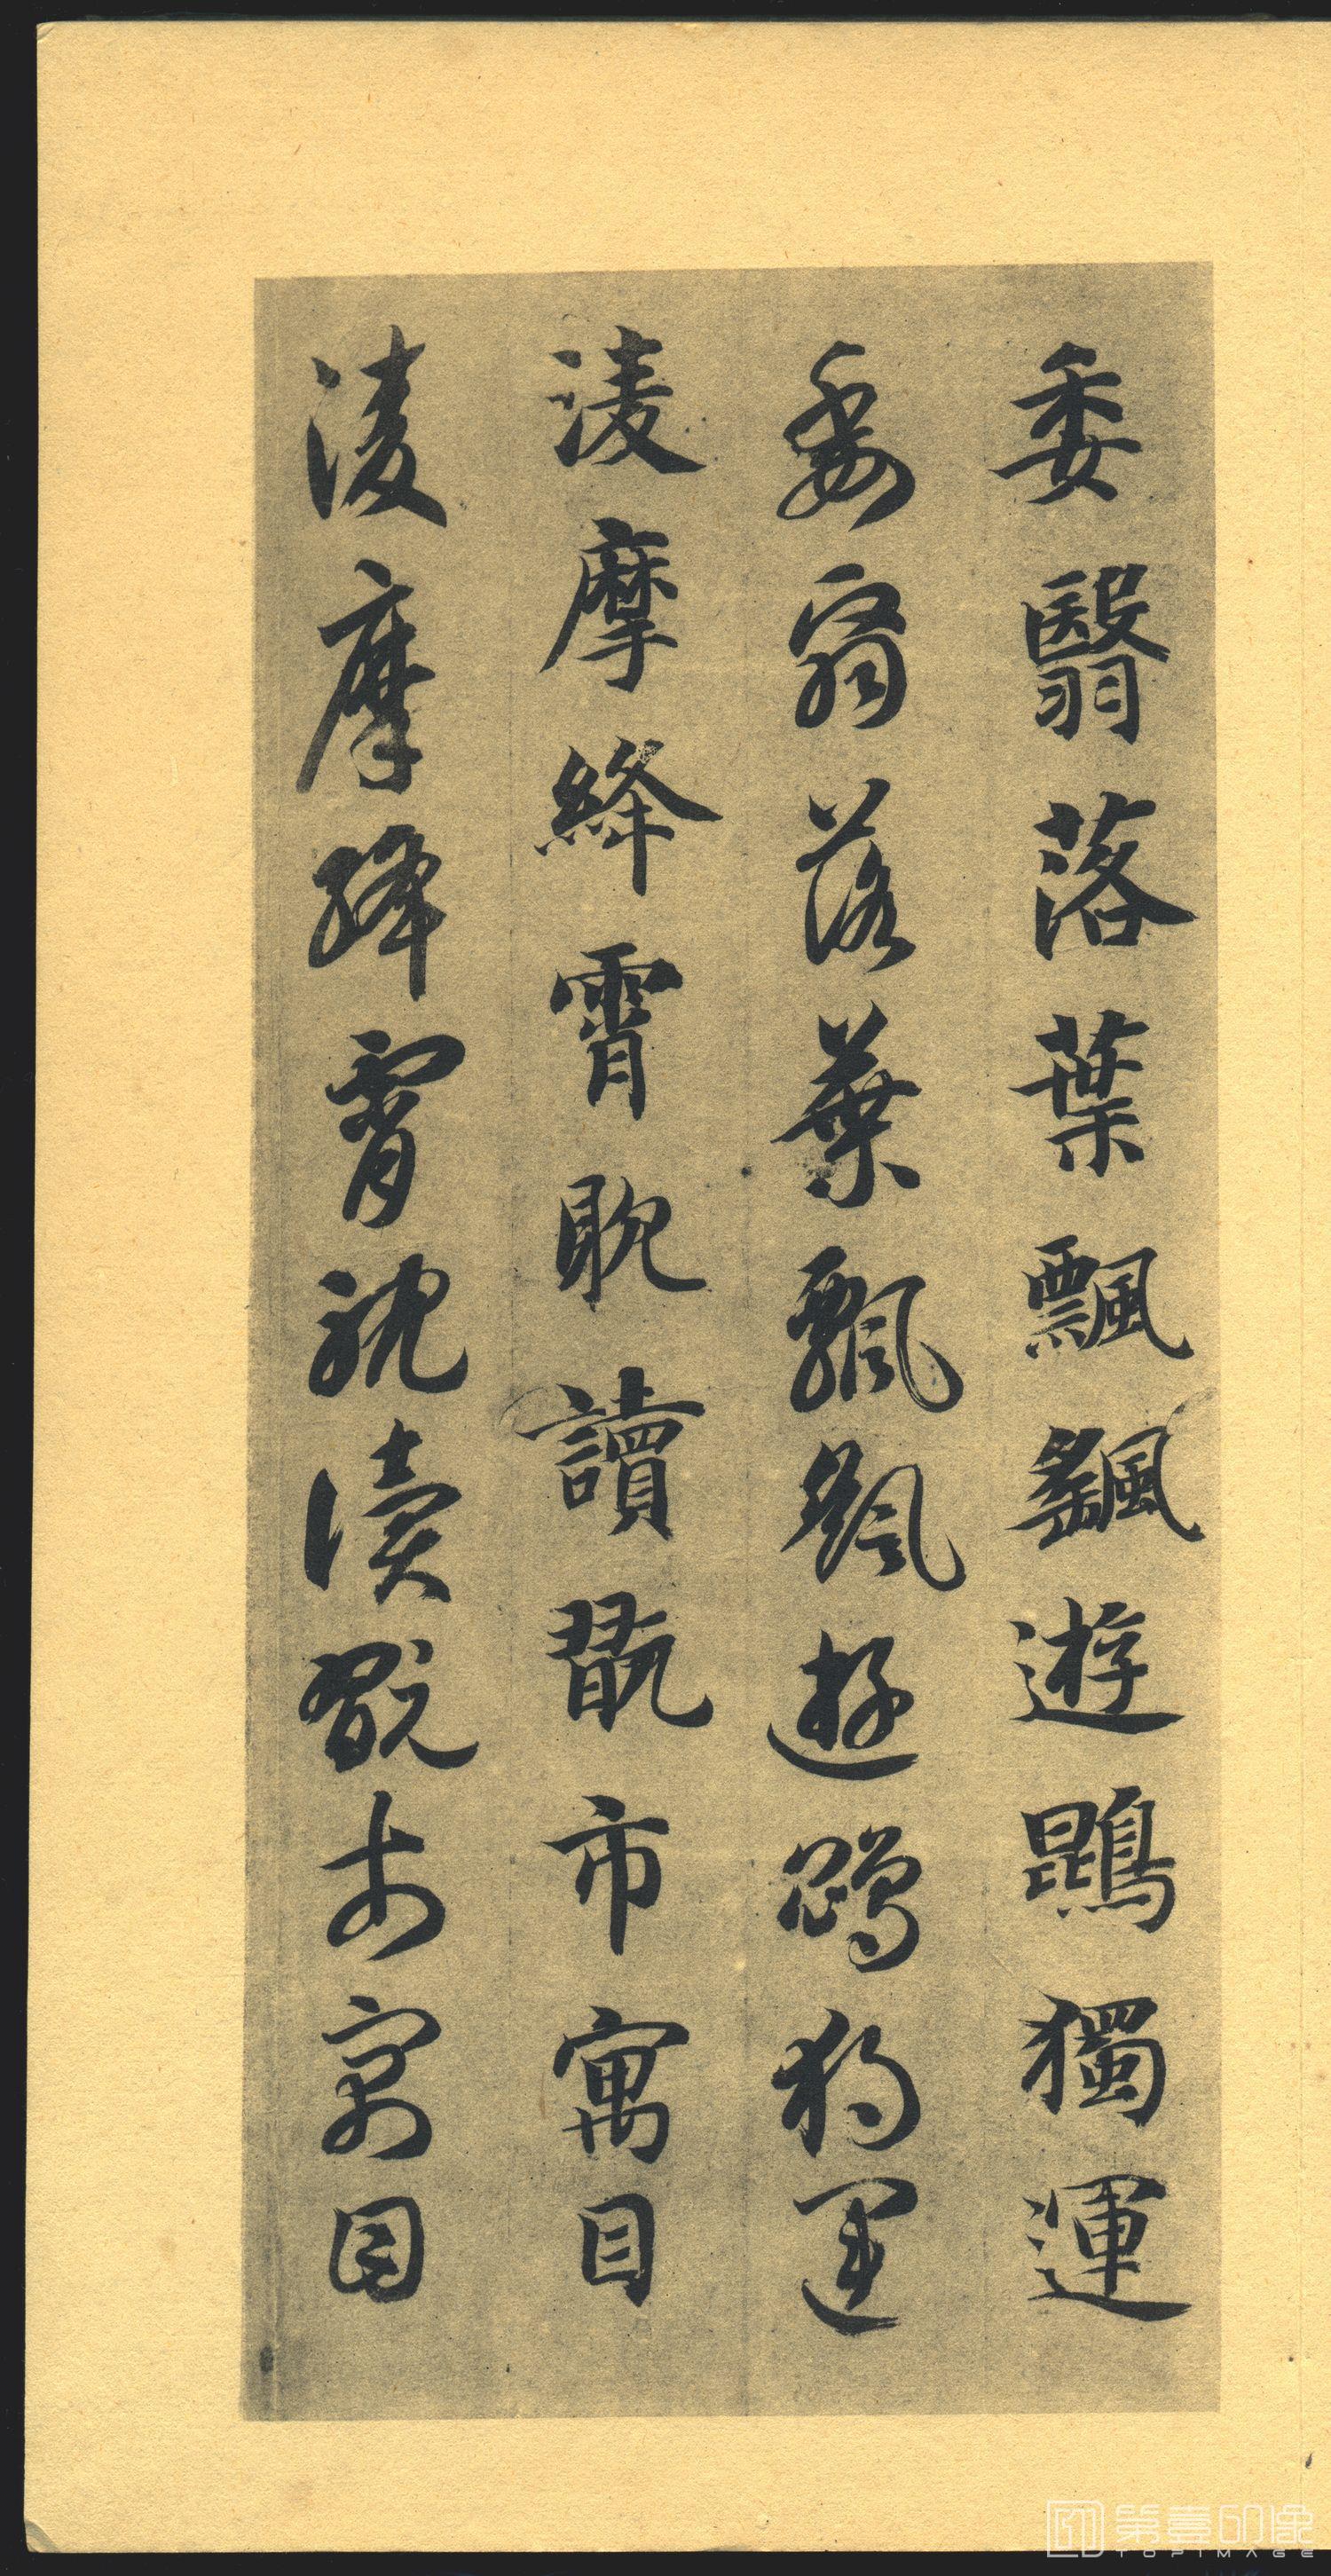 委翳落葉飄颻遊鵾獨運
委翳落葉飄颻遊鵾獨運
淩摩絳霄耽讀翫市寓目
淩摩絳霄耽讀翫市寓目
第壹印像
TOPIMAGE